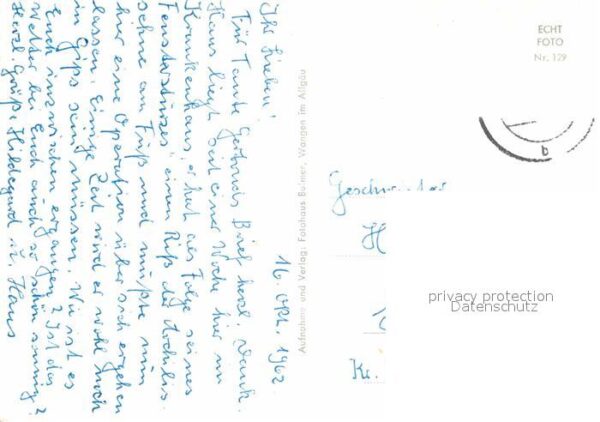 16. Okt. 1962
Ihr Lieben!
Für Tante Gertruds Brief herzl. Dank.
Hans liegt seit einer Woche hier im
Krankenhaus, er hat als Folge seines
Fenstersturzes einen Riß der Achilles-
sehne am Fuß und mußte nun
hier eine Operation über sich ergehen
lassen. Einige Zeit wird er wohl noch
in Gips sein müssen. Wie ist es
Euch inzwischen ergangen? Ist das
Wetter bei Euch auch so schön sonnig?
Herzl. Grüße Hildegard u. Hans
Aufnahme und Verlag: Fotohaus Wangen im Allgäu
ECHT
FOTO
Nr. 129
b
H
Kr.
privacy protection
Datenschutz